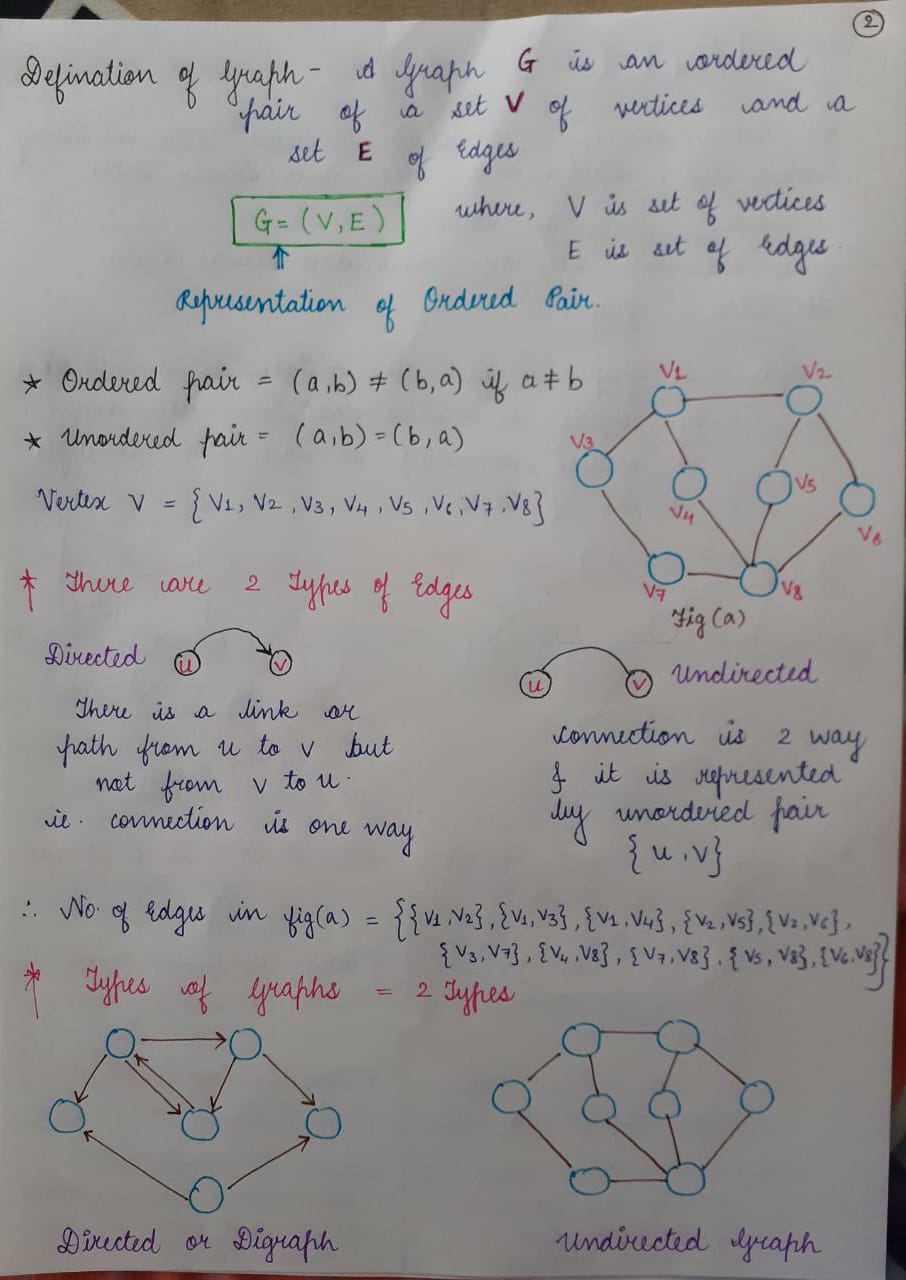 2
Defination of Graph - A Graph G is an ordered
pair of a set V of vertices and a
set E of Edges.
G = (V, E)
where, V is set of vertices
E is set of Edges.
Representation of Ordered Pair.
* Ordered pair = (a,b) ≠ (b,a) if a ≠ b
* Unordered pair = (a,b) = (b,a)
Vertex V = {V1, V2, V3, V4, V5, V6, V7, V8}
V1
V2
V3
V4
V5
V6
V7
V8
Fig (a)
* There are 2 Types of Edges
Directed u v
There is a link or
path from u to v but
not from v to u.
ie. connection is one way
u v Undirected
connection is 2 way
& it is represented
by unordered pair
{u, v}
∴ No. of Edges in fig(a) = {{V1,V2}, {V1,V3}, {V1,V4}, {V2,V5}, {V2,V6},
{V3,V7}, {V4,V8}, {V7,V8}, {V5,V8}, {V6,V8}}
* Types of Graphs = 2 Types
Directed or Digraph
Undirected Graph